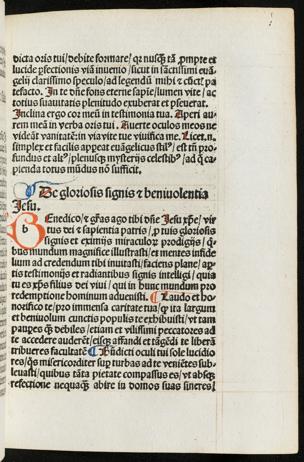 dicta oris tui/debite formare/ qꝛ nusq̃ tã ꝓmpte et
lucide ꝑfectionis viã inuenio/sicut in sacratissimi euã-
gelij clarissimo speculo/ad legendũ mihi ⁊ cũctꝭ pa
tefacto. In te dñe fons eterne sapiẽ/lumen vite/ ac
totius suauitatis plenitudo exuberat et pseuerat.
Inclina ergo cor meũ in testimonia tua. Aperi au-
rem meã in verba oris tui. Auerte oculos meos ne
vidcãt vanitatẽ: in via vite tue viuifica me. Licet.n.
simplex et facilis appeat euangelicus stilꝰ/ est tñ pro-
fundus et altꝰ/plenusqꝫ mysterijs celestibꝰ/ad q̃ ca-
pienda totus mũdus nõ sufficit.
De gloriosis signis ⁊ beniuolentia
Jesu.
BEnedico/⁊ gr̃as ago tibi dñe Jesu xp̃e/vir
tus dei ⁊ sapientia patris/ꝓ tuis gloriosis
signis et eximijs miraculoꝝ prodigijs/ q̃-
bus mundum magnifice illustrasti/et mentes infide
lium ad credendum tibi inuitasti/faciens plane/ap-
tis testimonijs et radiantibus signis intelligi/quia
tu es xp̃s filius dei viui/qui in hunc mundum pro
redemptione hominum aduenisti. Laudo et ho-
norifico te/pro immensa caritate tua/q̃ ita largum
et beniuolum cunctis populis te exhibuisti/vt tam
paupes q̃ debiles/etiam et vilissimi peccatores ad
te accedere auderẽt/eisqꝫ affandi et tãgẽdi te liberã
tribueres facultatẽ Bñdicti oculi tui sole lucidio
res/q̃s misericorditer sup turbas ad te veniẽtes sub-
leuasti/quibus tãta pietate compassus es/vt absqꝫ
refectione nequaq̃ abire in domos suas sineres!